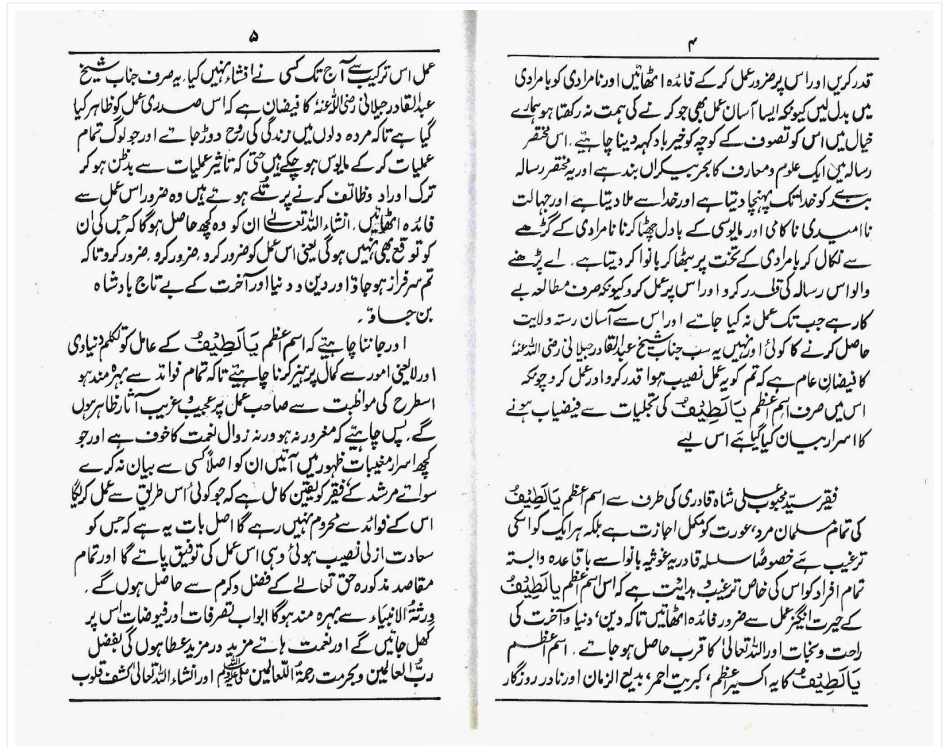 ۴
قدر کریں اور اس پر ضرور عمل کر کے فائدہ اٹھائیں اور نامرادی کو بامرادی
میں بدل لیں کیونکہ ایسا آسان عمل بھی جو کرنے کی ہمت نہ رکھتا ہو ہمارے
خیال میں اس کو تصوف کے کوچہ کو خیر باد کہہ دینا چاہیے ۔ اس مختصر
رسالہ میں ایک علوم و معارف کا بحر بیکراں بند ہے اور یہ مختصر رسالہ
بندے کو خدا تک پہنچا دیتا ہے اور خدا سے ملا دیتا ہے اور جہالت
ناامیدی ناکامی اور مایوسی کے بادل چھٹا کرنا نامرادی کے گڑھے
سے نکال کر بامرادی کے تخت پر بیٹھا کر بانوا کر دیتا ہے ۔ اے پڑھنے
والو اس رسالہ کی قدر کرو اور اس پر عمل کرو کیونکہ صرف مطالعہ بے
کار ہے جب تک عمل نہ کیا جائے اور اس سے آسان رستہ ولایت
حاصل کرنے کا کوئی اور نہیں یہ سب جناب شیخ عبدالقادر جیلانی رضی اللہ عنہ
کا فیضان عام ہے کہ تم کو یہ عمل نصیب ہوا قدر کرو اور عمل کرو چونکہ
اس میں صرف اسم اعظم یَا لَطِیْفُ کی تجلیات سے فیضیاب ہونے
کا اسرار بیان کیا گیا ہے اس لیے
فقیر سید محبوب علی شاہ قادری کی طرف سے اسم اعظم یَا لَطِیْفُ
کی تمام مسلمان مرد، عورت کو مکمل اجازت ہے بلکہ ہر ایک کو اسکی
ترغیب ہے خصوصًا سلسلہ قادریہ غوثیہ بانوا سے باقاعدہ وابستہ
تمام افراد کو اس کی خاص ترغیب و ہدایت ہے کہ اس اسم اعظم یَا لَطِیْفُ
کے حیرت انگیز عمل سے ضرور فائدہ اٹھائیں تاکہ دین، دنیا و آخت کی
راحت و نجات اور اللہ تعالیٰ کا قرب حاصل ہو جائے ۔ اسم اعظم
یَا لَطِیْفُ کا یہ اکسیر اعظم، کبریت احمر، بدیع الزمان اور نادر روزگار
۵
عمل اس ترکیب سے آج تک کسی نے افشاء نہیں کیا، یہ صرف جناب شیخ
عبدالقادر جیلانی رضی اللہ عنہ کا فیضان ہے کہ اس صدری عمل کو ظاہر کیا
گیا ہے تاکہ مردہ دلوں میں زندگی کی روح دوڑ جائے اور جو لوگ تمام
عملیات کر کے مایوس ہو چکے ہیں حتی کہ تاثیر عملیات سے بدظن ہو کر
ترک اوراد وظائف کرنے پر تلے ہوئے ہیں وہ ضرور اس عمل سے
فائدہ اٹھائیں ۔ انشاء اللہ تعالےٰ ان کو وہ کچھ حاصل ہوگا کہ جس کی ان
کو توقع بھی نہیں ہوگی یعنی اس عمل کو ضرور کرو ۔ ضرور کرو ۔ ضرور کرو تاکہ
تم سرفراز ہو جاؤ اور دین و دنیا اور آخرت کے بے تاج بادشاہ
بن جاؤ ۔
اور جاننا چاہیے کہ اسم اعظم یَا لَطِیْفُ کے عامل کو تکلم دنیاوی
اور لایعنی امور سے کمال پرہیز کرنا چاہیے تاکہ تمام فوائد سے بہرہ مند ہو
اسطرح کی مواظبت سے صاحب عمل پر عجیب و غریب آثار ظاہر ہوں
گے ۔ پس چاہیے کہ مغرور نہ ہو ورنہ زوال نعمت کا خوف ہے اور جو
کچھ اسرار مغیبات ظہور میں آئیں ان کو اصلاً کسی سے بیان نہ کرے
سوائے مرشد کے فقیر کو یقین کامل ہے کہ جو کوئی اس طریق سے عمل کریگا
اس کے فوائد سے محروم نہیں رہے گا اصل بات یہ ہے کہ جس کو
سعادت ازلی نصیب ہوئی وہی اس عمل کی توفیق پائے گا اور تمام
مقاصد مذکورہ حق تعالےٰ کے فضل و کرم سے حاصل ہوں گے ۔
ورثۃ الانبیاء سے بہرہ مند ہوگا ابواب تصرفات اور فیوضات اس پر
کھل جائیں گے اور نعمت ہائے مزید در مزید عطا ہوں گی بفضل
ربّ العالمین و بحرمت رحمۃ اللعالمین ﷺ اور انشاء اللہ تعالیٰ کشف قلوب